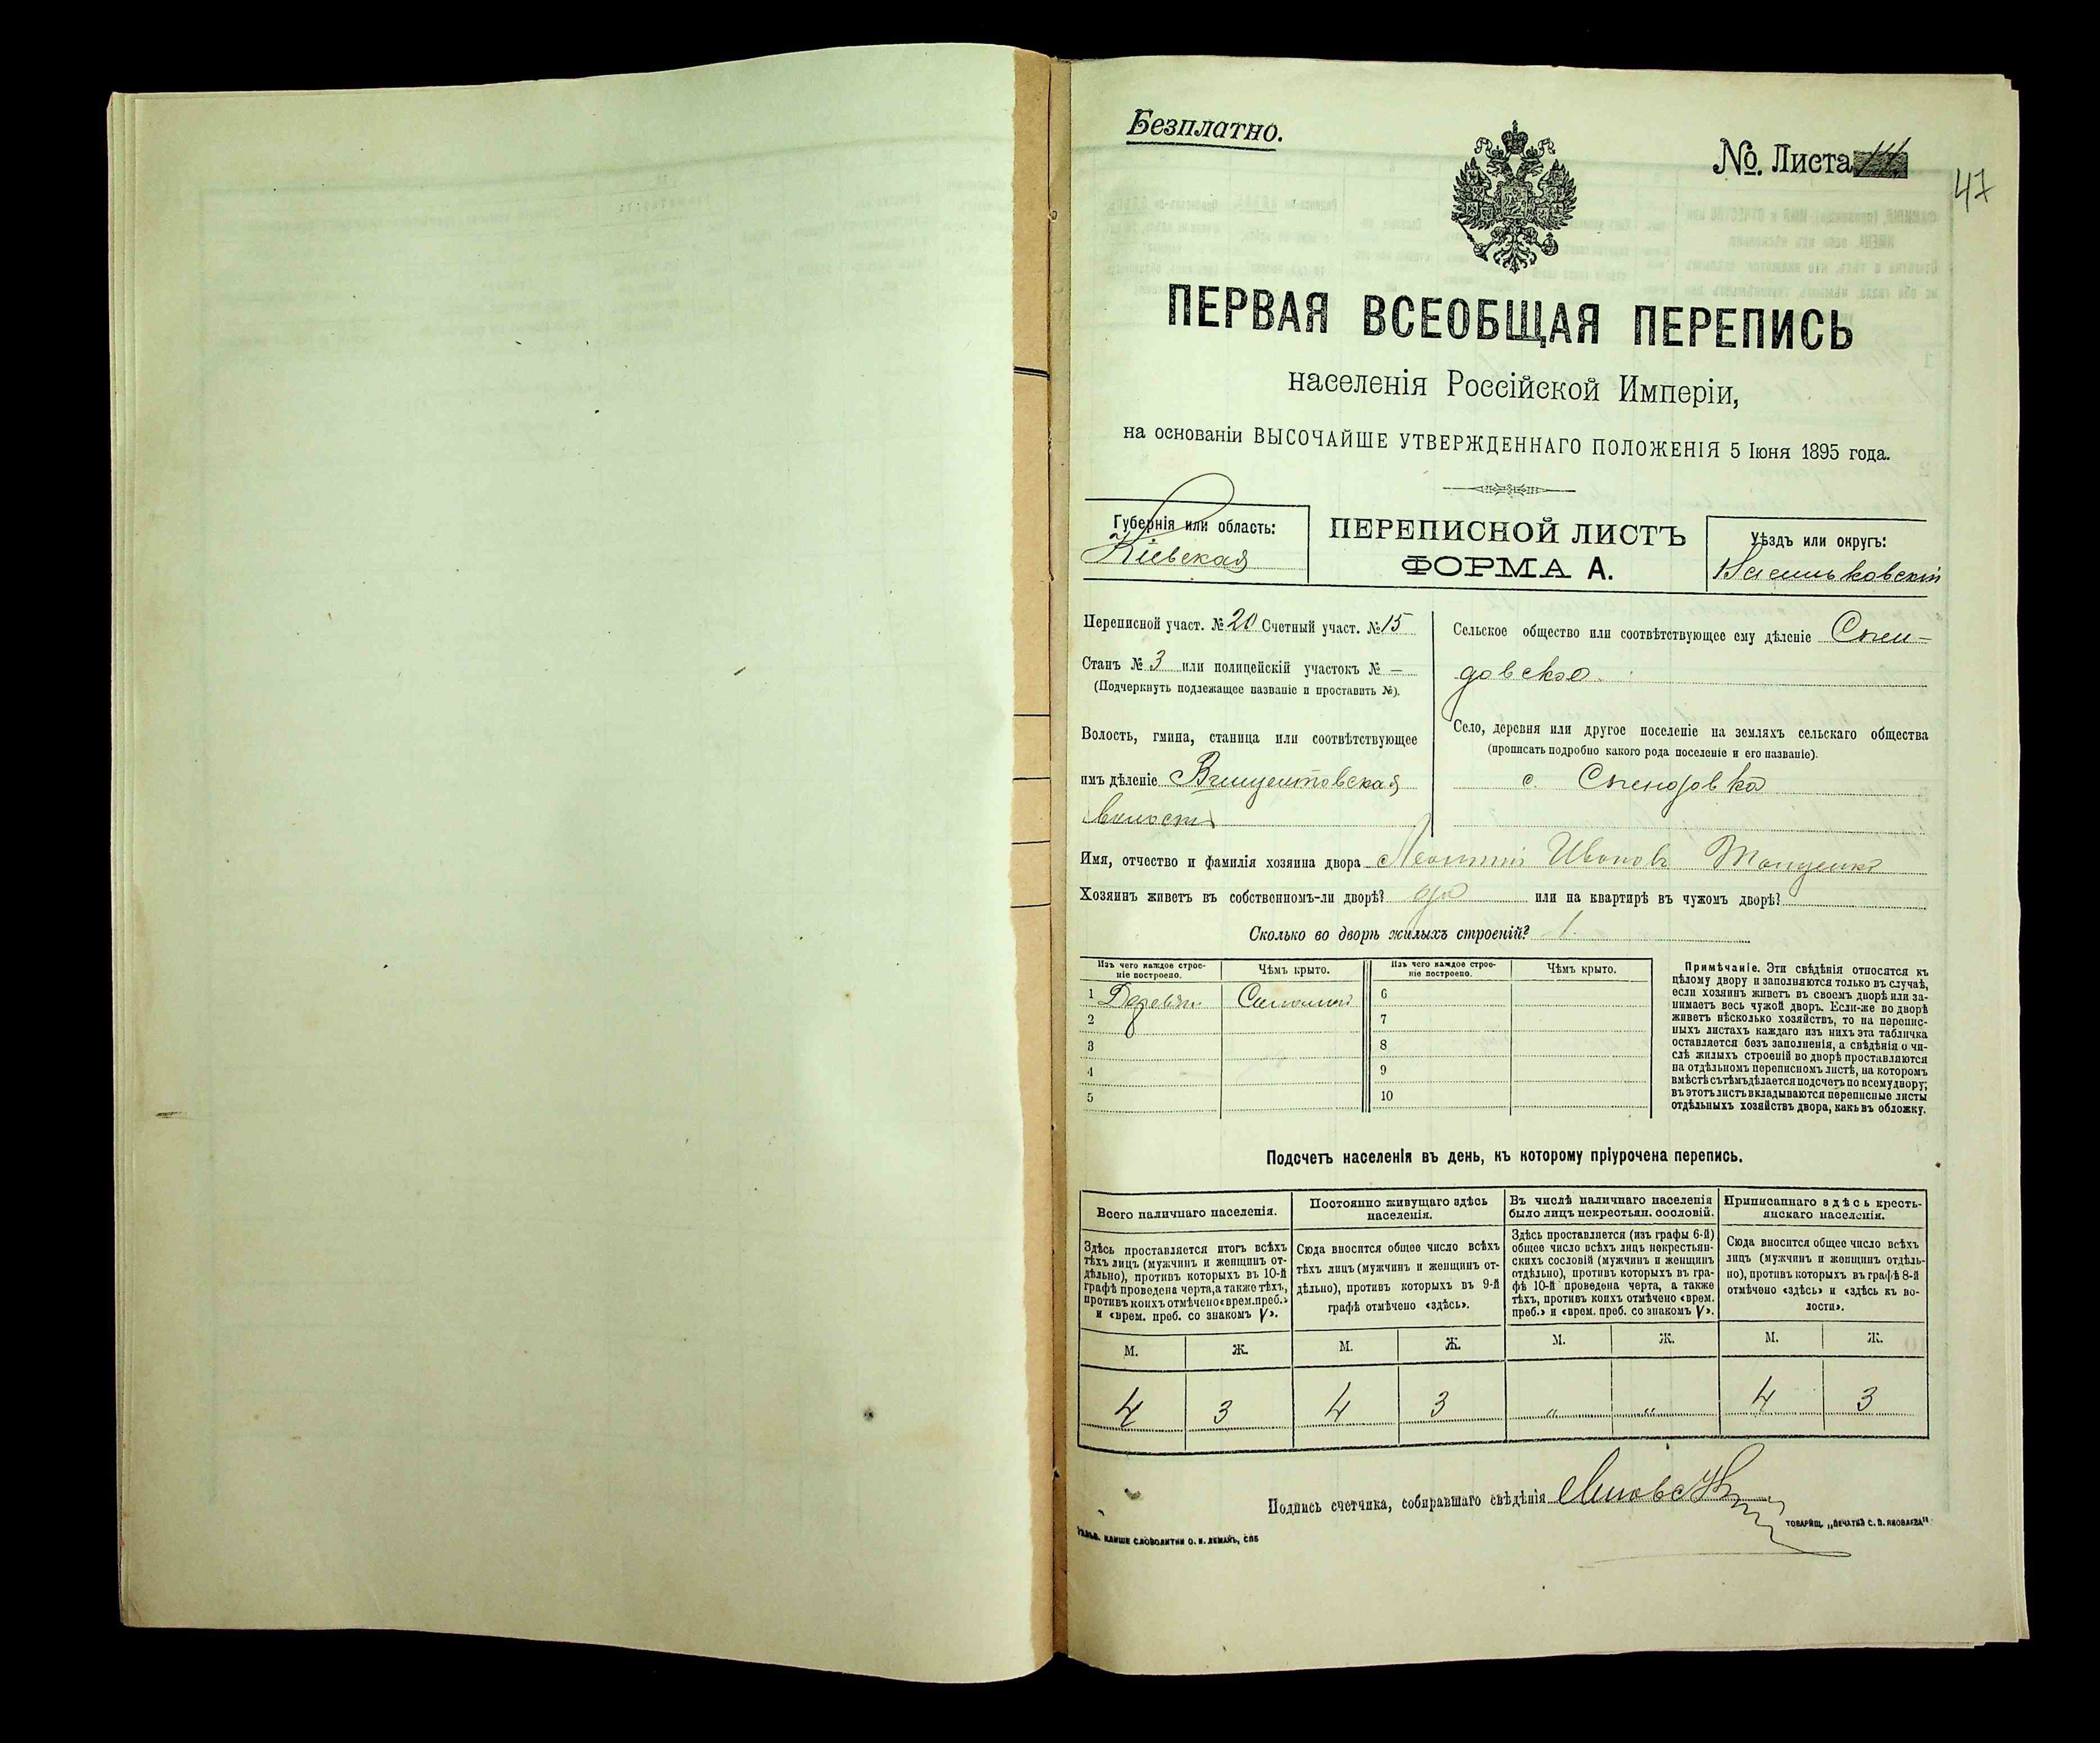 Безплатно.
№. Листа
47
ПЕРВАЯ ВСЕОБЩАЯ ПЕРЕПИСЬ
населенія Россійской Имперіи,
на основаніи ВЫСОЧАЙШЕ УТВЕРЖДЕННАГО ПОЛОЖЕНІЯ 5 Іюня 1895 года.
Губернія или область:
Кіевская
ПЕРЕПИСНОЙ ЛИСТЪ
ФОРМА А.
Уѣздъ или округъ:
Васильковскій
Переписной участ. № 20 Счетный участ. № 15
Станъ № 3 или полицейскій участокъ № —
(Подчеркнуть подлежащее названіе и проставить №).
Волость, гмина, станица или соотвѣтствующее
имъ дѣленіе Винцентовская
волость
Сельское общество или соотвѣтствующее ему дѣленіе
довское
Село, деревня или другое поселеніе на земляхъ сельскаго общества
(прописать подробно какого рода поселеніе и его названіе).
с.
Имя, отчество и фамилія хозяина двора Леонтій Ивановъ
Хозяинъ живетъ въ собственномъ-ли дворѣ? да или на квартирѣ въ чужомъ дворѣ?
Сколько во дворѣ жилыхъ строеній? 1.
Изъ чего каждое строе-
ніе построено.
Чѣмъ крыто.
Изъ чего каждое строе-
ніе построено.
Чѣмъ крыто.
1 Деревян. Соломой 6
2 7
3 8
4 9
5 10
Примѣчаніе. Эти свѣдѣнія относятся къ
цѣлому двору и заполняются только въ случаѣ,
если хозяинъ живетъ въ своемъ дворѣ или за-
нимаетъ весь чужой дворъ. Если-же во дворѣ
живетъ нѣсколько хозяйствъ, то на перепис-
ныхъ листахъ каждаго изъ нихъ эта табличка
оставляется безъ заполненія, а свѣдѣнія о чи-
слѣ жилыхъ строеній во дворѣ проставляются
на отдѣльномъ переписномъ листѣ, на которомъ
вмѣстѣ съ тѣмъ дѣлается подсчетъ по всему двору;
въ этотъ листъ вкладываются переписные листы
отдѣльныхъ хозяйствъ двора, какъ въ обложку.
Подсчетъ населенія въ день, къ которому пріурочена перепись.
Всего наличнаго населенія.
Здѣсь проставляется итогъ всѣхъ
тѣхъ лицъ (мужчинъ и женщинъ от-
дѣльно), противъ которыхъ въ 10-й
графѣ проведена черта, а также тѣхъ,
противъ коихъ отмѣчено «врем. преб.»
и «врем. преб. со знакомъ V».
Постоянно живущаго здѣсь
населенія.
Сюда вносится общее число всѣхъ
тѣхъ лицъ (мужчинъ и женщинъ от-
дѣльно), противъ которыхъ въ 9-й
графѣ отмѣчено «здѣсь».
Въ числѣ наличнаго населенія
было лицъ некрестьян. сословій.
Здѣсь проставляется (изъ графы 6-й)
общее число всѣхъ лицъ некрестьян-
скихъ сословій (мужчинъ и женщинъ
отдѣльно), противъ которыхъ въ гра-
фѣ 10-й проведена черта, а также
тѣхъ, противъ коихъ отмѣчено «врем.
преб.» и «врем. преб. со знакомъ V».
Приписаннаго здѣсь кресть-
янскаго населенія.
Сюда вносится общее число всѣхъ
лицъ (мужчинъ и женщинъ отдѣль-
но), противъ которыхъ въ графѣ 8-й
отмѣчено «здѣсь» и «здѣсь къ во-
лости».
М. Ж. М. Ж. М. Ж. М. Ж.
4 3 4 3 " " 4 3
Подпись счетчика, собиравшаго свѣдѣнія
КЛИШЕ СЛОВОЛИТНИ О. И. ЛЕМАНЪ, СПБ
ТОВАРИЩ. „ПЕЧАТНЯ С. П. ЯКОВЛЕВА“